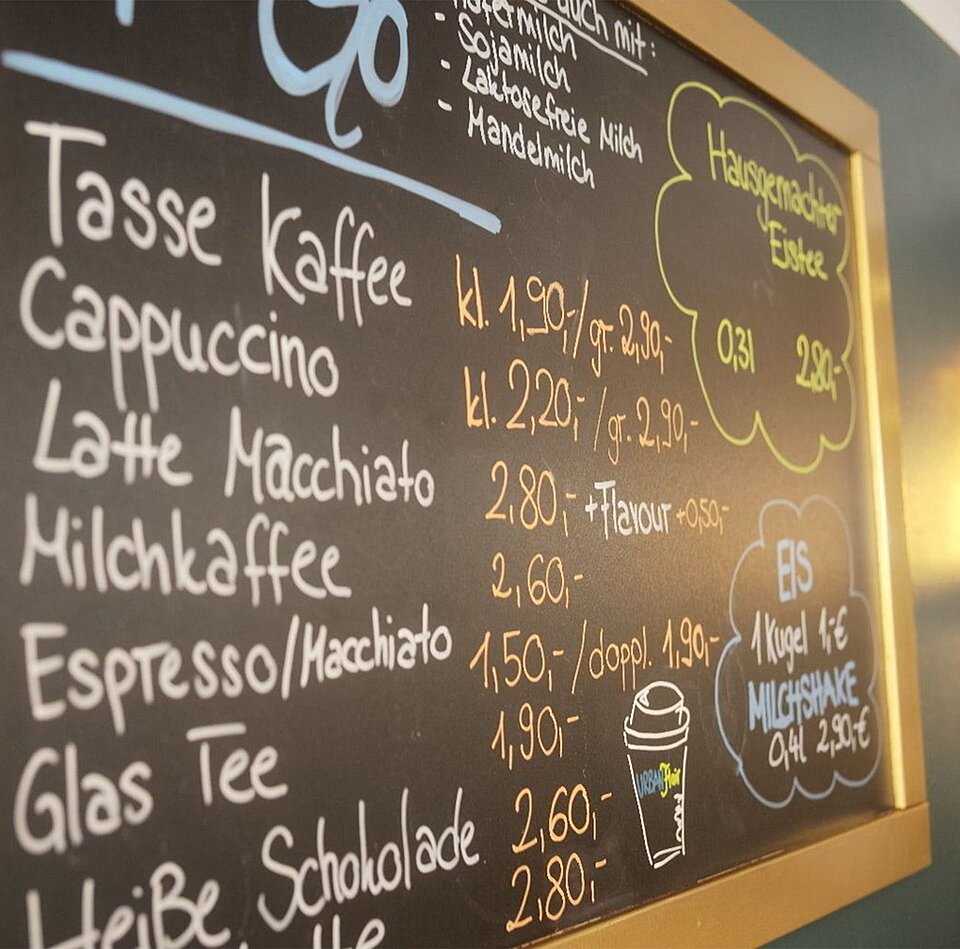 Go
auch mit:
- Hafermilch
- Sojamilch
- Laktosefreie Milch
- Mandelmilch
Tasse Kaffee kl. 1,90,-/gr. 2,90,-
Cappuccino kl. 2,20,-/gr. 2,90,-
Latte Macchiato 2,80,- +Flavour +0,50,-
Milchkaffee 2,60,-
Espresso/Macchiato 1,50,-/doppl. 1,90,-
Glas Tee 1,90,-
Heiße Schokolade 2,60,-
2,80,-
Hausgemachter
Eistee
0,3l 2,80,-
EIS
1 Kugel 1,-€
MILCHSHAKE
0,4l 2,90,-€
URBAN Flair